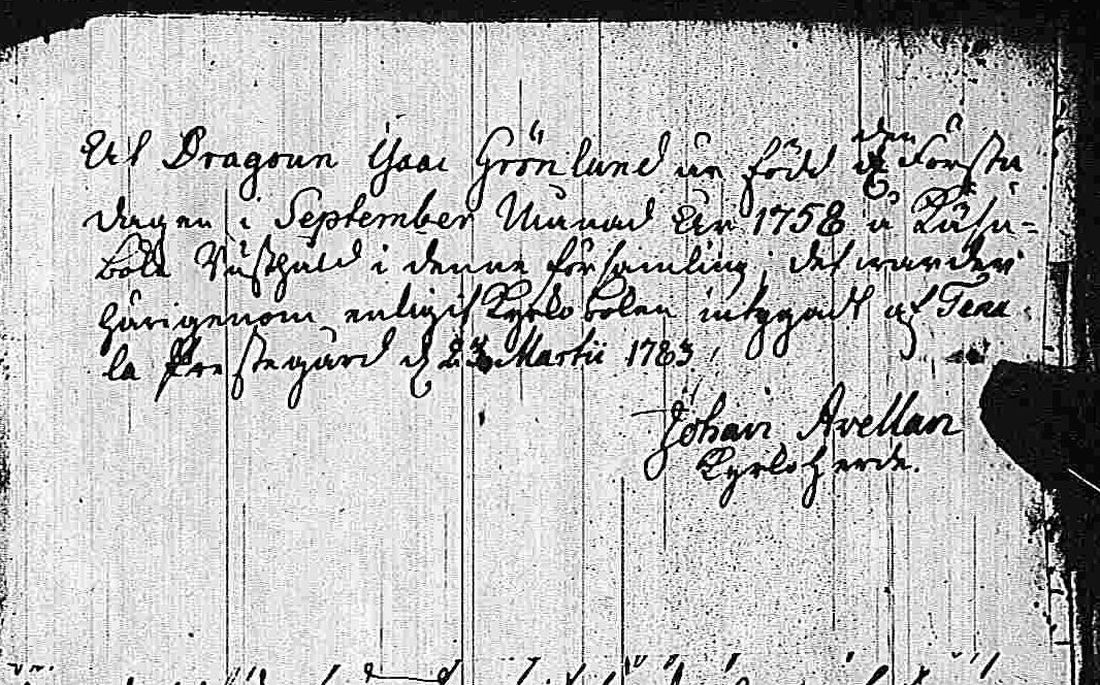 At Dragoun Isaac Grönlund är född den Första
dagen i September Månad År 1758 å Råsa=
böle Rusthåld i denne församling, det warder
härigenom enligit Kyrko boken intygadt af Tena
la Prestegård d 23 Martii 1783.
Johan Avellan
Kyrko Herde.